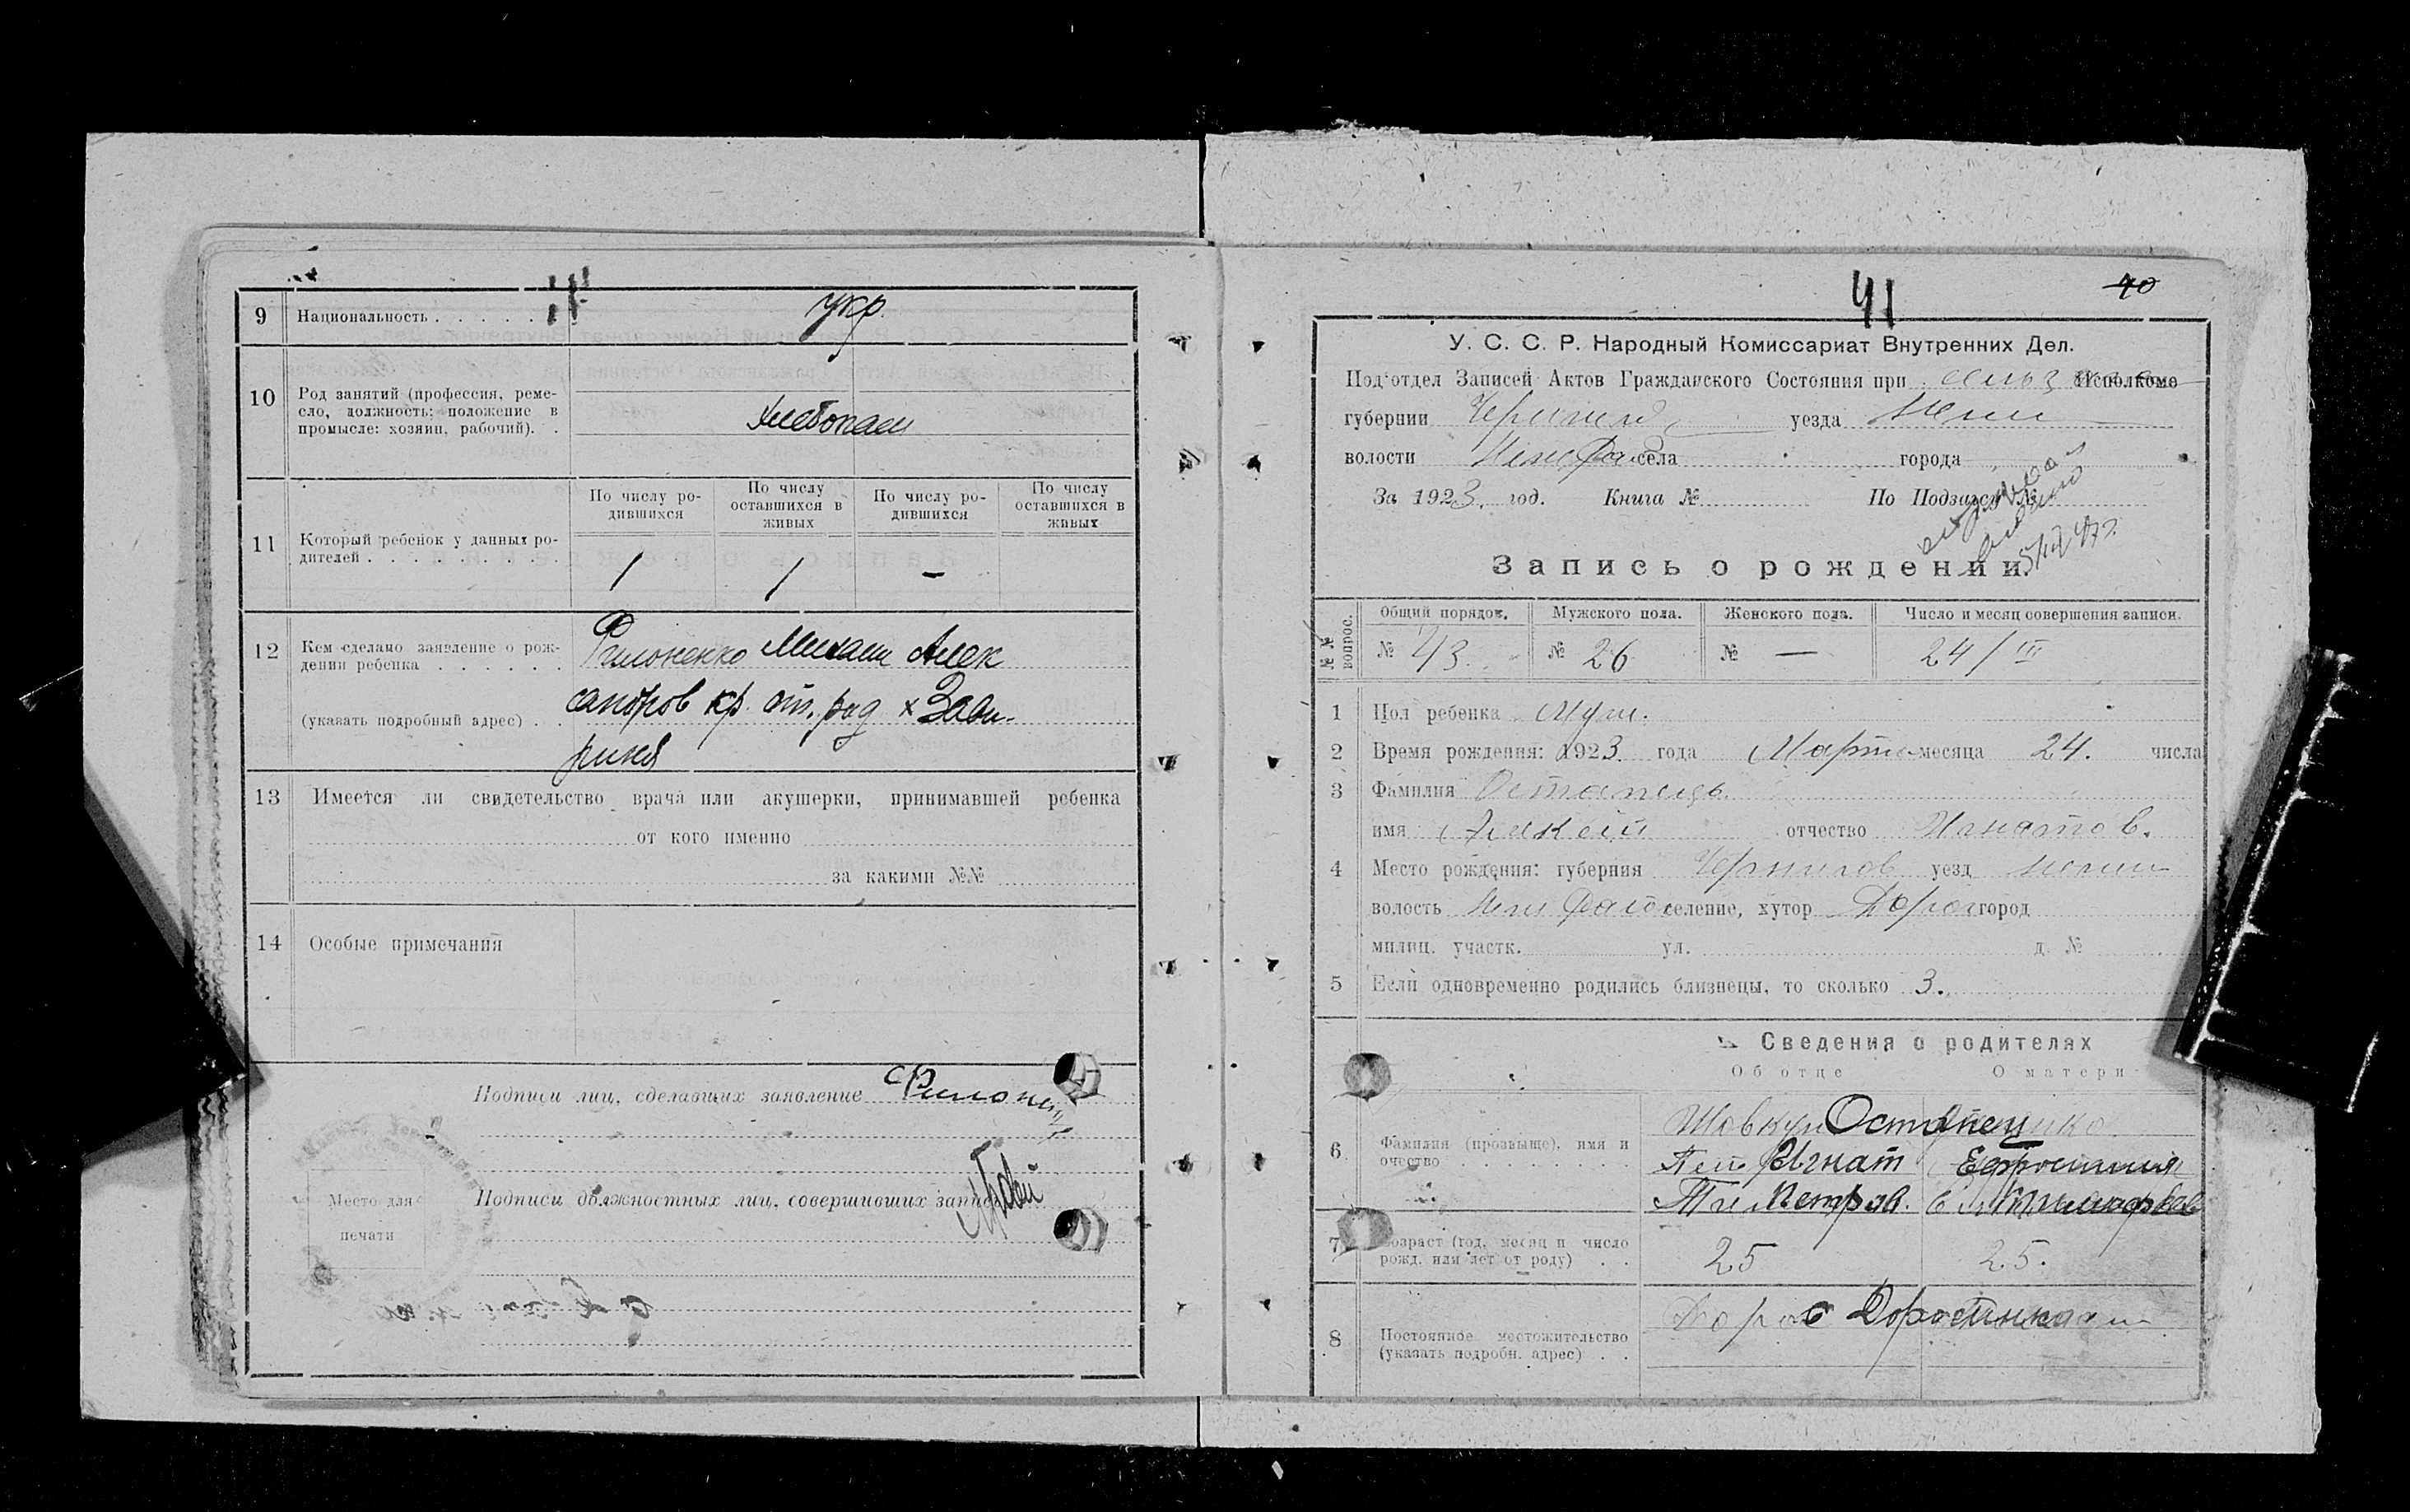 9 Национальность . . . . . укр.
10 Род занятий (профессия, реме-
сло, должность: положение в
промысле: хозяин, рабочий). .
Хлебопаш
По числу ро-
дившихся
По числу
оставшихся в
живых
По числу ро-
дившихся
По числу
оставшихся в
живых
11 Который ребенок у данных ро-
дителей . . . . . . . . . .
1 1 —
12 Кем сделано заявление о рож-
дении ребенка . . . . . .
Филоненко Михаил Алек
(указать подробный адрес) . .
сандров кр. от. род х
13 Имеется ли свидетельство врача или акушерки, принимавшей ребенка
от кого именно
за какими №№
14 Особые примечания
Подписи лиц, сделавших заявление Филонен
Подписи должностных лиц, совершивших запись
Место для
печати
41 40
У. С. С. Р. Народный Комиссариат Внутренних Дел.
Под'отдел Записей Актов Гражданского Состояния при Исполкоме
губернии Чернигов уезда Нежин
волости села города
За 1923. год. Книга № По Подзагсу №
Запись о рождении.
№№ вопрос.
Общий порядок. Мужского пола. Женского пола. Число и месяц совершения записи.
№ 43 № 26 № — 24/III
1 Пол ребенка Муж.
2 Время рождения: 1923. года Марта месяца 24. числа
3 Фамилия Остапець
имя отчество Игнатов.
4 Место рождения: губерния Чернигов уезд Нежин
волость селение, хутор город
милиц. участк. ул. д. №
5 Если одновременно родились близнецы, то сколько 3.
Сведения о родителях
Об отце О матери
6 Фамилия (прозвыще), имя и
очество . . . . . . . . .
Остапець
Игнат Ефросиния
Петров.
7 Возраст (год, месяц и число
рожд. или лет от роду) . .
25 25.
8 Постоянное местожительство
(указать подробн. адрес) . .